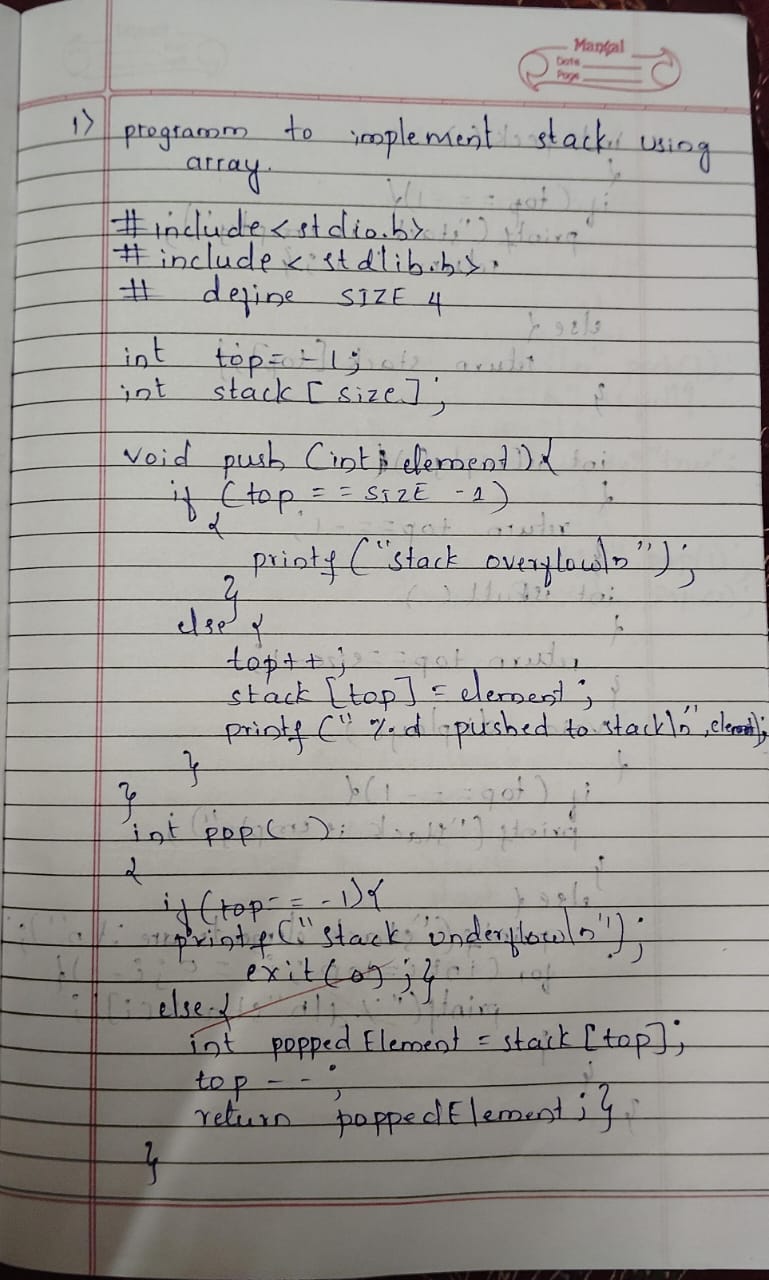 Mangal
Date
Page
1) programm to implement stack using
array.
#include<stdio.h>
#include<stdlib.h>
# define SIZE 4
int top=-1;
int stack [size];
void push (int element){
if (top == SIZE -1)
{
printf ("stack overflow\n");
}
else {
top++;
stack [top] = element;
printf (" %d pushed to stack\n", element);
}
}
int pop( )
{
if (top == -1){
printf (" stack underflow\n");
exit(0); }
else {
int poppedElement = stack [top];
top --;
return poppedElement ; }
}